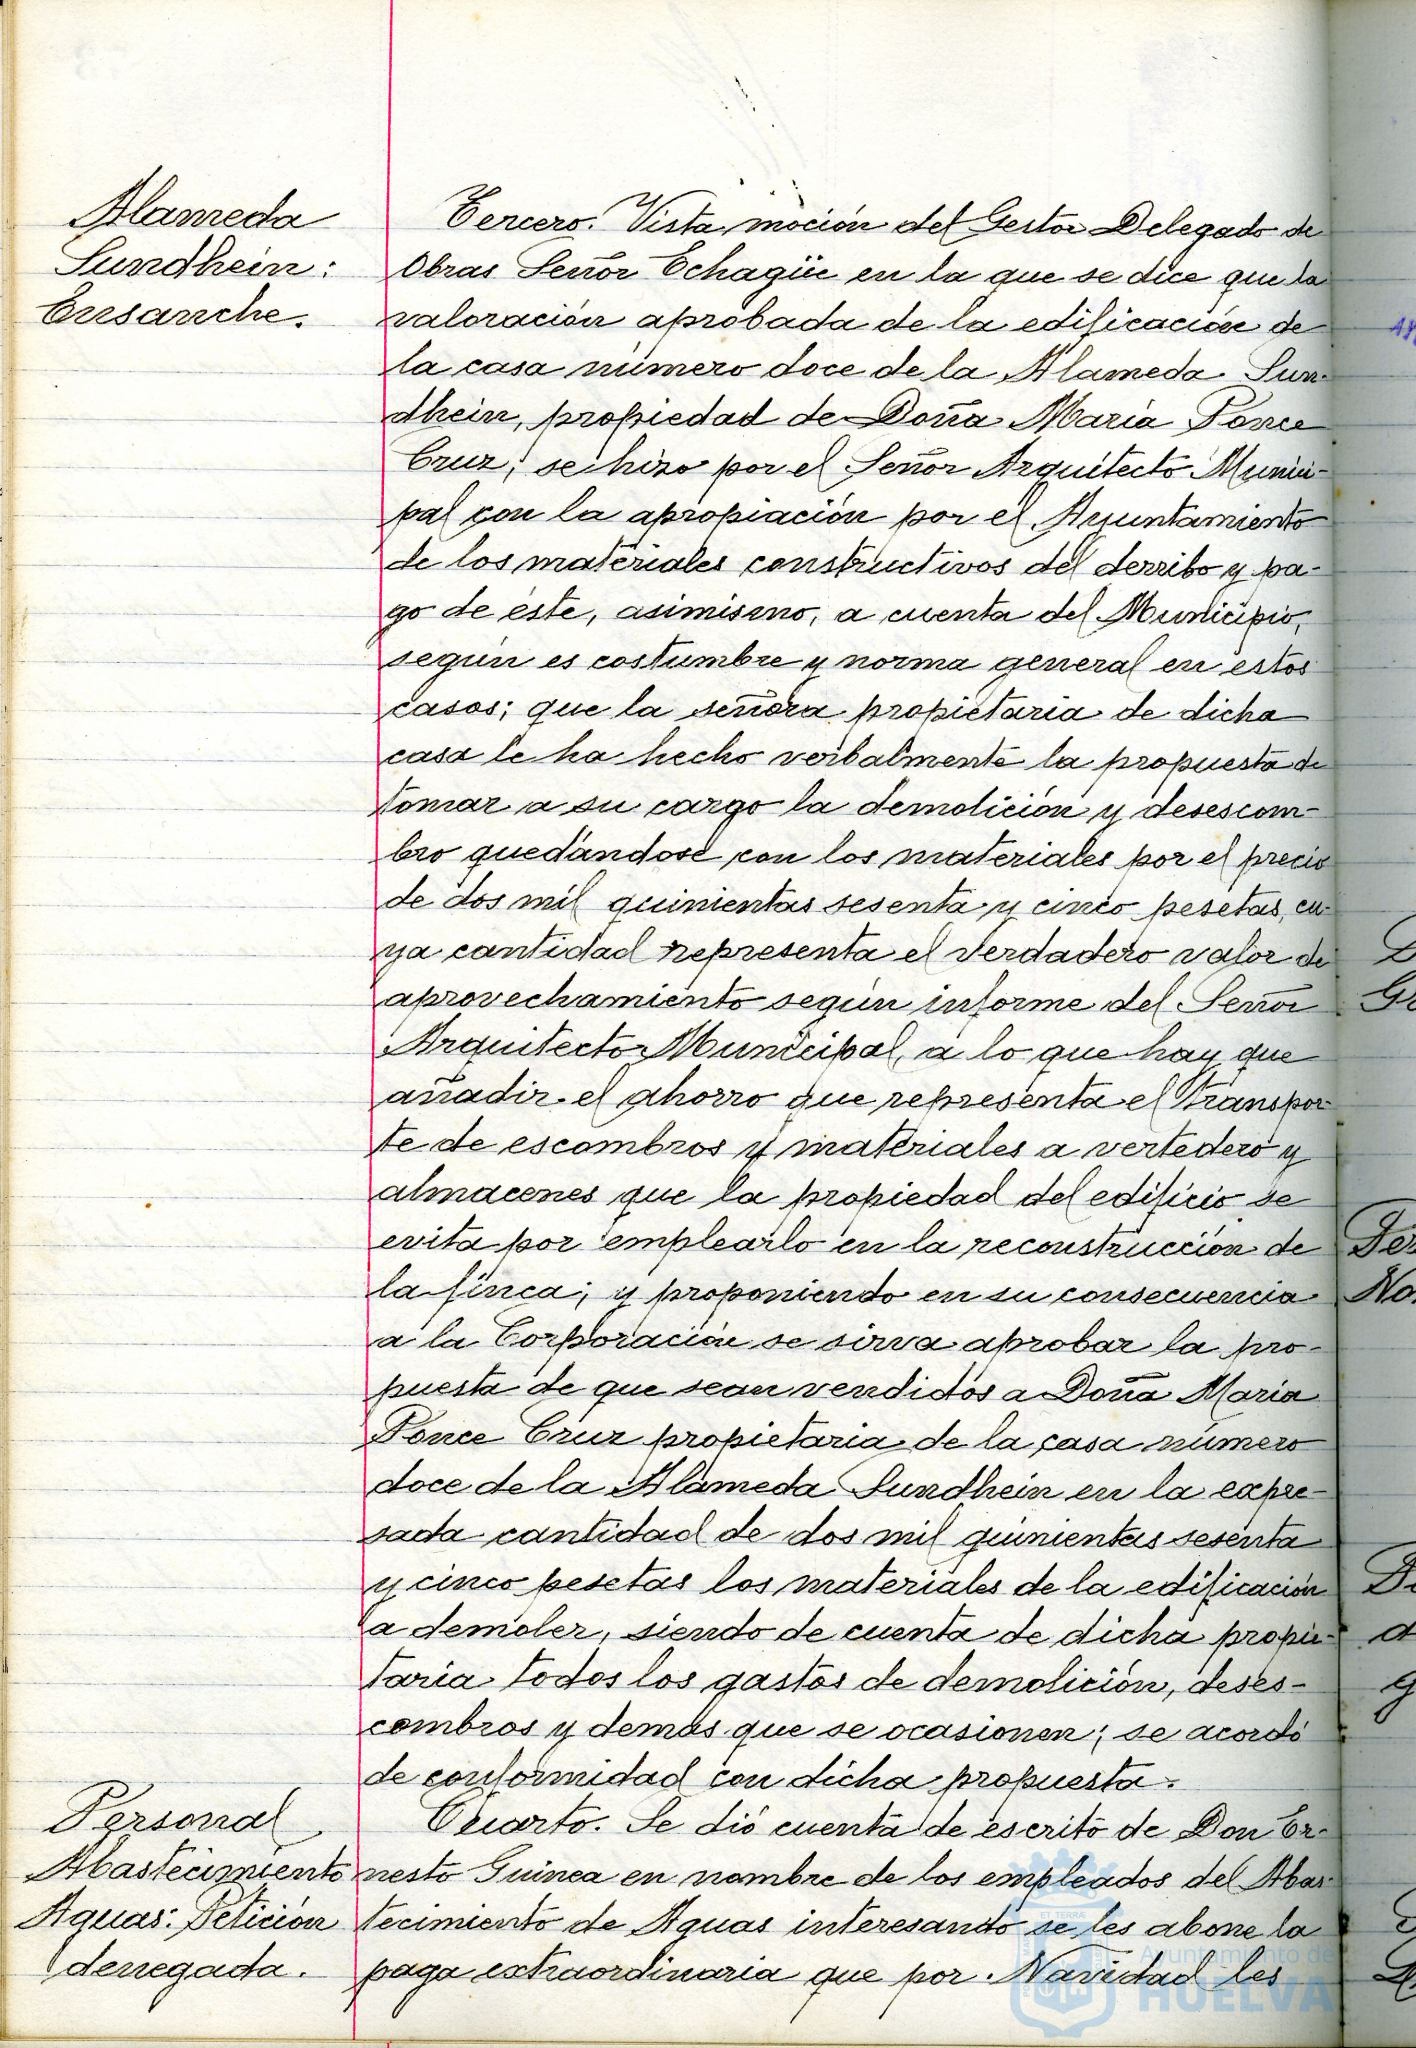 Alameda
Sundhein:
Ensanche.
Tercero. Vista moción del Gestor Delegado de
Obras Señor Echagüe en la que se dice que la
valoración aprobada de la edificación de
la casa número doce de la Alameda Sun-
dhein, propiedad de Doña María Ponce
Cruz; se hizo por el Señor Arquitecto Munici-
pal con la apropiación por el Ayuntamiento
de los materiales constructivos del derribo y pa-
go de éste, asimismo, a cuenta del Municipio,
según es costumbre y norma general en estos
casos; que la señora propietaria de dicha
casa le ha hecho verbalmente la propuesta de
tomar a su cargo la demolición y desescom-
bro quedándose con los materiales por el precio
de dos mil quinientas sesenta y cinco pesetas, cu-
ya cantidad representa el verdadero valor de
aprovechamiento según informe del Señor
Arquitecto Municipal, a lo que hay que
añadir el ahorro que representa el transpor-
te de escombros y materiales a vertedero y
almacenes que la propiedad del edificio se
evita por emplearlo en la reconstrucción de
la finca; y proponiendo en su consecuencia
a la Corporación se sirva aprobar la pro-
puesta de que sean vendidos a Doña María
Ponce Cruz propietaria de la casa número
doce de la Alameda Sundhein en la expre-
sada cantidad de dos mil quinientas sesenta
y cinco pesetas los materiales de la edificación
a demoler, siendo de cuenta de dicha propie-
taria todos los gastos de demolición, deses-
combros y demás que se ocasionen; se acordó
de conformidad con dicha propuesta.
Personal
Abastecimiento
Aguas: Petición
denegada.
Cuarto. Se dió cuenta de escrito de Don Er-
nesto Guinea en nombre de los empleados del Abas-
tecimiento de Aguas interesando se les abone la
paga extraordinaria que por Navidad les
Ayuntamiento de
HUELVA